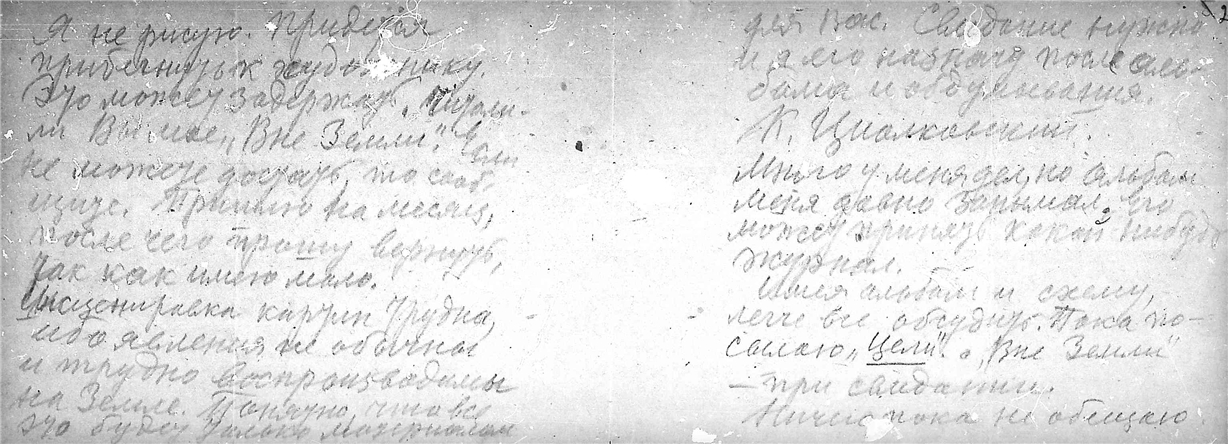 Я не рисую. Придется
прибегнуть к художнику.
Это может задержать. Читали-
ли Вы мое „Вне Земли". Если
не можете достать, то сооб-
щите. Пришлю на месяц,
после чего прошу вернуть,
так как имею мало.
Инсценировка картин трудна,
ибо явления не обычны
и трудно воспроизводимы
на Земле. Понятно, что все
это будет только материалом
для Вас. Свидание нужно
и я его назначу после аль-
бома и обдумывания.
К. Циолковский.
Много у меня дел, но альбом
меня давно занимал. Его
может принять какой нибудь
журнал.
Имея альбом и схему,
легче все обсудить. Пока по-
сылаю „Цели". „Вне Земли"
— при свидании.
Ничего пока не обещаю